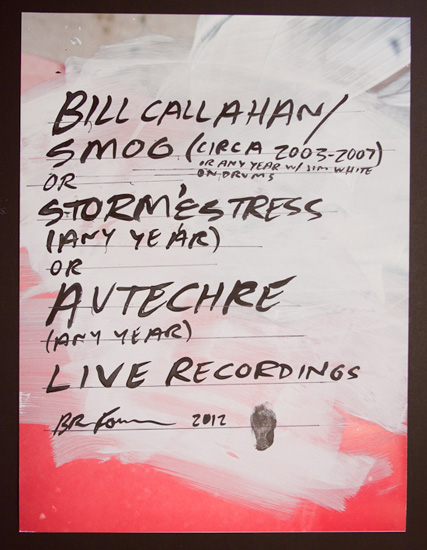 BILL CALLAHAN/
SMOG (CIRCA 2003-2007)
OR ANY YEAR W/ JIM WHITE
ON DRUMS
OR
STORM&STRESS
(ANY YEAR)
OR
AUTECHRE
(ANY YEAR)
LIVE RECORDINGS
2012